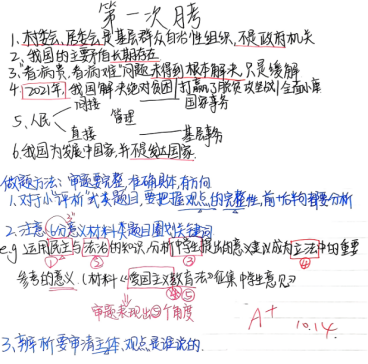 第一次月考
1、村委会、居委会是基层群众自治性组织,不是政府机关
2、我国的主要矛盾长期存在
3、"看病贵、看病难"问题未得到根本解决,只是缓解
4、2021年,我国解决绝对贫困,打赢了脱贫攻坚战,全面小康
5、人民 间接 管理 国家事务
直接 基层事务
6、我国为发展中国家,并不是发达国家.
做题方法:审题要完整,准确具体,有方向
1、对于小"评析"式类题目,要把握观点的完整性,前后句都要分析
2、注意6分意义材料类题目圈关键词
e.g 运用民主与法治的知识,分析中学生提出的意义建议成为立法中的重要
① ② ③ ④
参考的意义.(材料《爱国主义教育法》征集中学生意见)
④⑤
审题表现出5个角度
A+ 10.14.
3、辨析要审清主体,观点是谁说的.